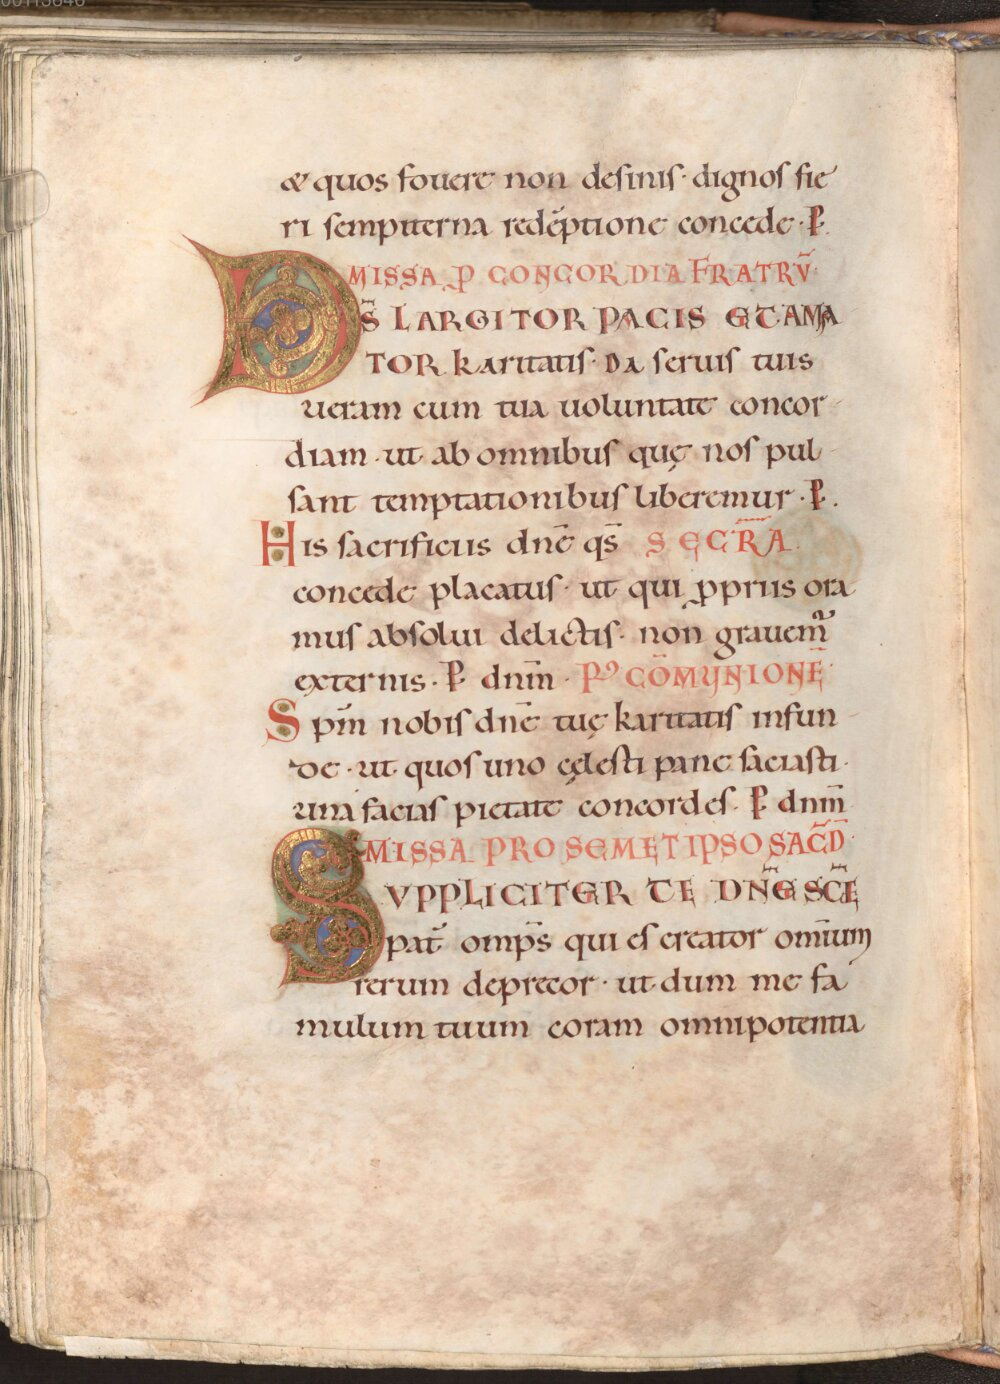 & quos fouere non desinis· dignos fie
ri sempiterna redēptione concede· P̵.
MISSA ꝑ CONCORDIA FRATRŪ·
DS̄ LARGITOR PACIS ET AMA
TOR karitatis· DA seruis tuis
ueram cum tua uoluntate concor
diam· ut ab omnibus quę nos pul
sant temptationibus liberemur· P̵.
His sacrificiis dnē qs̄ SECR̄A
concede placatus· ut qui ꝓpriis ora
mus absolui delictis· non grauem̄
externis· P̵ dnm̄· Pꝰ CŌMUNIONĒ
Spm̄ nobis dnē tuę karitatis infun
de· ut quos uno cęlesti pane saciasti·
una facias pietate concordes· P̵ dnm̄
MISSA PRO SEMETIPSO SAC̄D·
SUPPLICITER TE DN̄E SC̄E
pat̄ omps̄ qui es creator omīum
rerum deprecor· ut dum me fa
mulum tuum coram omnipotentia